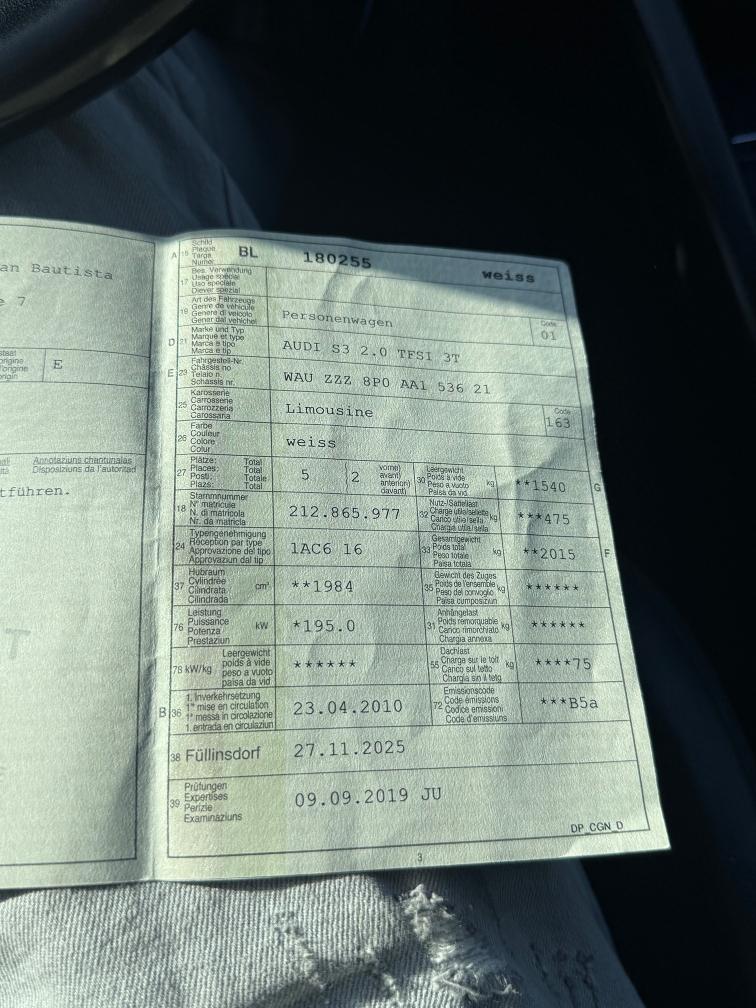 an Bautista
e 7
E
Annotaziuns chantunalas
Disposiziuns da l'autoritad
tführen.
A 15 Schild
Plaque
Targa
Numer
BL 180255 weiss
17 Bes. Verwendung
Usage spécial
Uso speciale
Diever spezial
19 Art des Fahrzeugs
Genre de véhicule
Genere di veicolo
Gener dal vehichel
Personenwagen
Code
01
D 21 Marke und Typ
Marque et type
Marca e tipo
Marca e tip
AUDI S3 2.0 TFSI 3T
E 23 Fahrgestell-Nr.
Châssis no
Telaio n.
Schassis nr.
WAU ZZZ 8P0 AA1 536 21
25 Karosserie
Carrosserie
Carrozzeria
Carossaria
Limousine
Code
163
26 Farbe
Couleur
Colore
Colur
weiss
27 Plätze: Total
Places: Total
Posti: Totale
Plazs: Total
5 2
vorne)
avant)
anteriori)
davant)
30 Leergewicht
Poids à vide
Peso a vuoto
Paisa da vid
kg
**1540 G
18 Stammnummer
N° matricule
N. di matricola
Nr. da matricla
212.865.977
32 Nutz-/Sattellast
Charge utile/sellette
Carico utile/sella
Chargia utila/sella
kg
***475
24 Typengenehmigung
Réception par type
Approvazione del tipo
Approvaziun dal tip
1AC6 16
33 Gesamtgewicht
Poids total
Peso totale
Paisa totala
kg
**2015 F
37 Hubraum
Cylindrée
Cilindrata
Cilindrada
cm³
**1984
35 Gewicht des Zuges
Poids de l'ensemble
Peso del convoglio
Paisa cumposiziun
kg
******
76 Leistung
Puissance
Potenza
Prestaziun
kW
*195.0
31 Anhängelast
Poids remorquable
Carico rimorchiato
Chargia annexa
kg
******
78 kW/kg
Leergewicht
poids à vide
peso a vuoto
paisa da vid
******
55 Dachlast
Charge sur le toit
Carico sul tetto
Chargia sin il tetg
kg
****75
B 36 1. Inverkehrsetzung
1re mise en circulation
1a messa in circolazione
1. entrada en circulaziun
23.04.2010
72 Emissionscode
Code émissions
Codice emissioni
Code d'emissiuns
***B5a
38 Füllinsdorf 27.11.2025
39 Prüfungen
Expertises
Perizie
Examinaziuns
09.09.2019 JU
DP_CGN_D
3